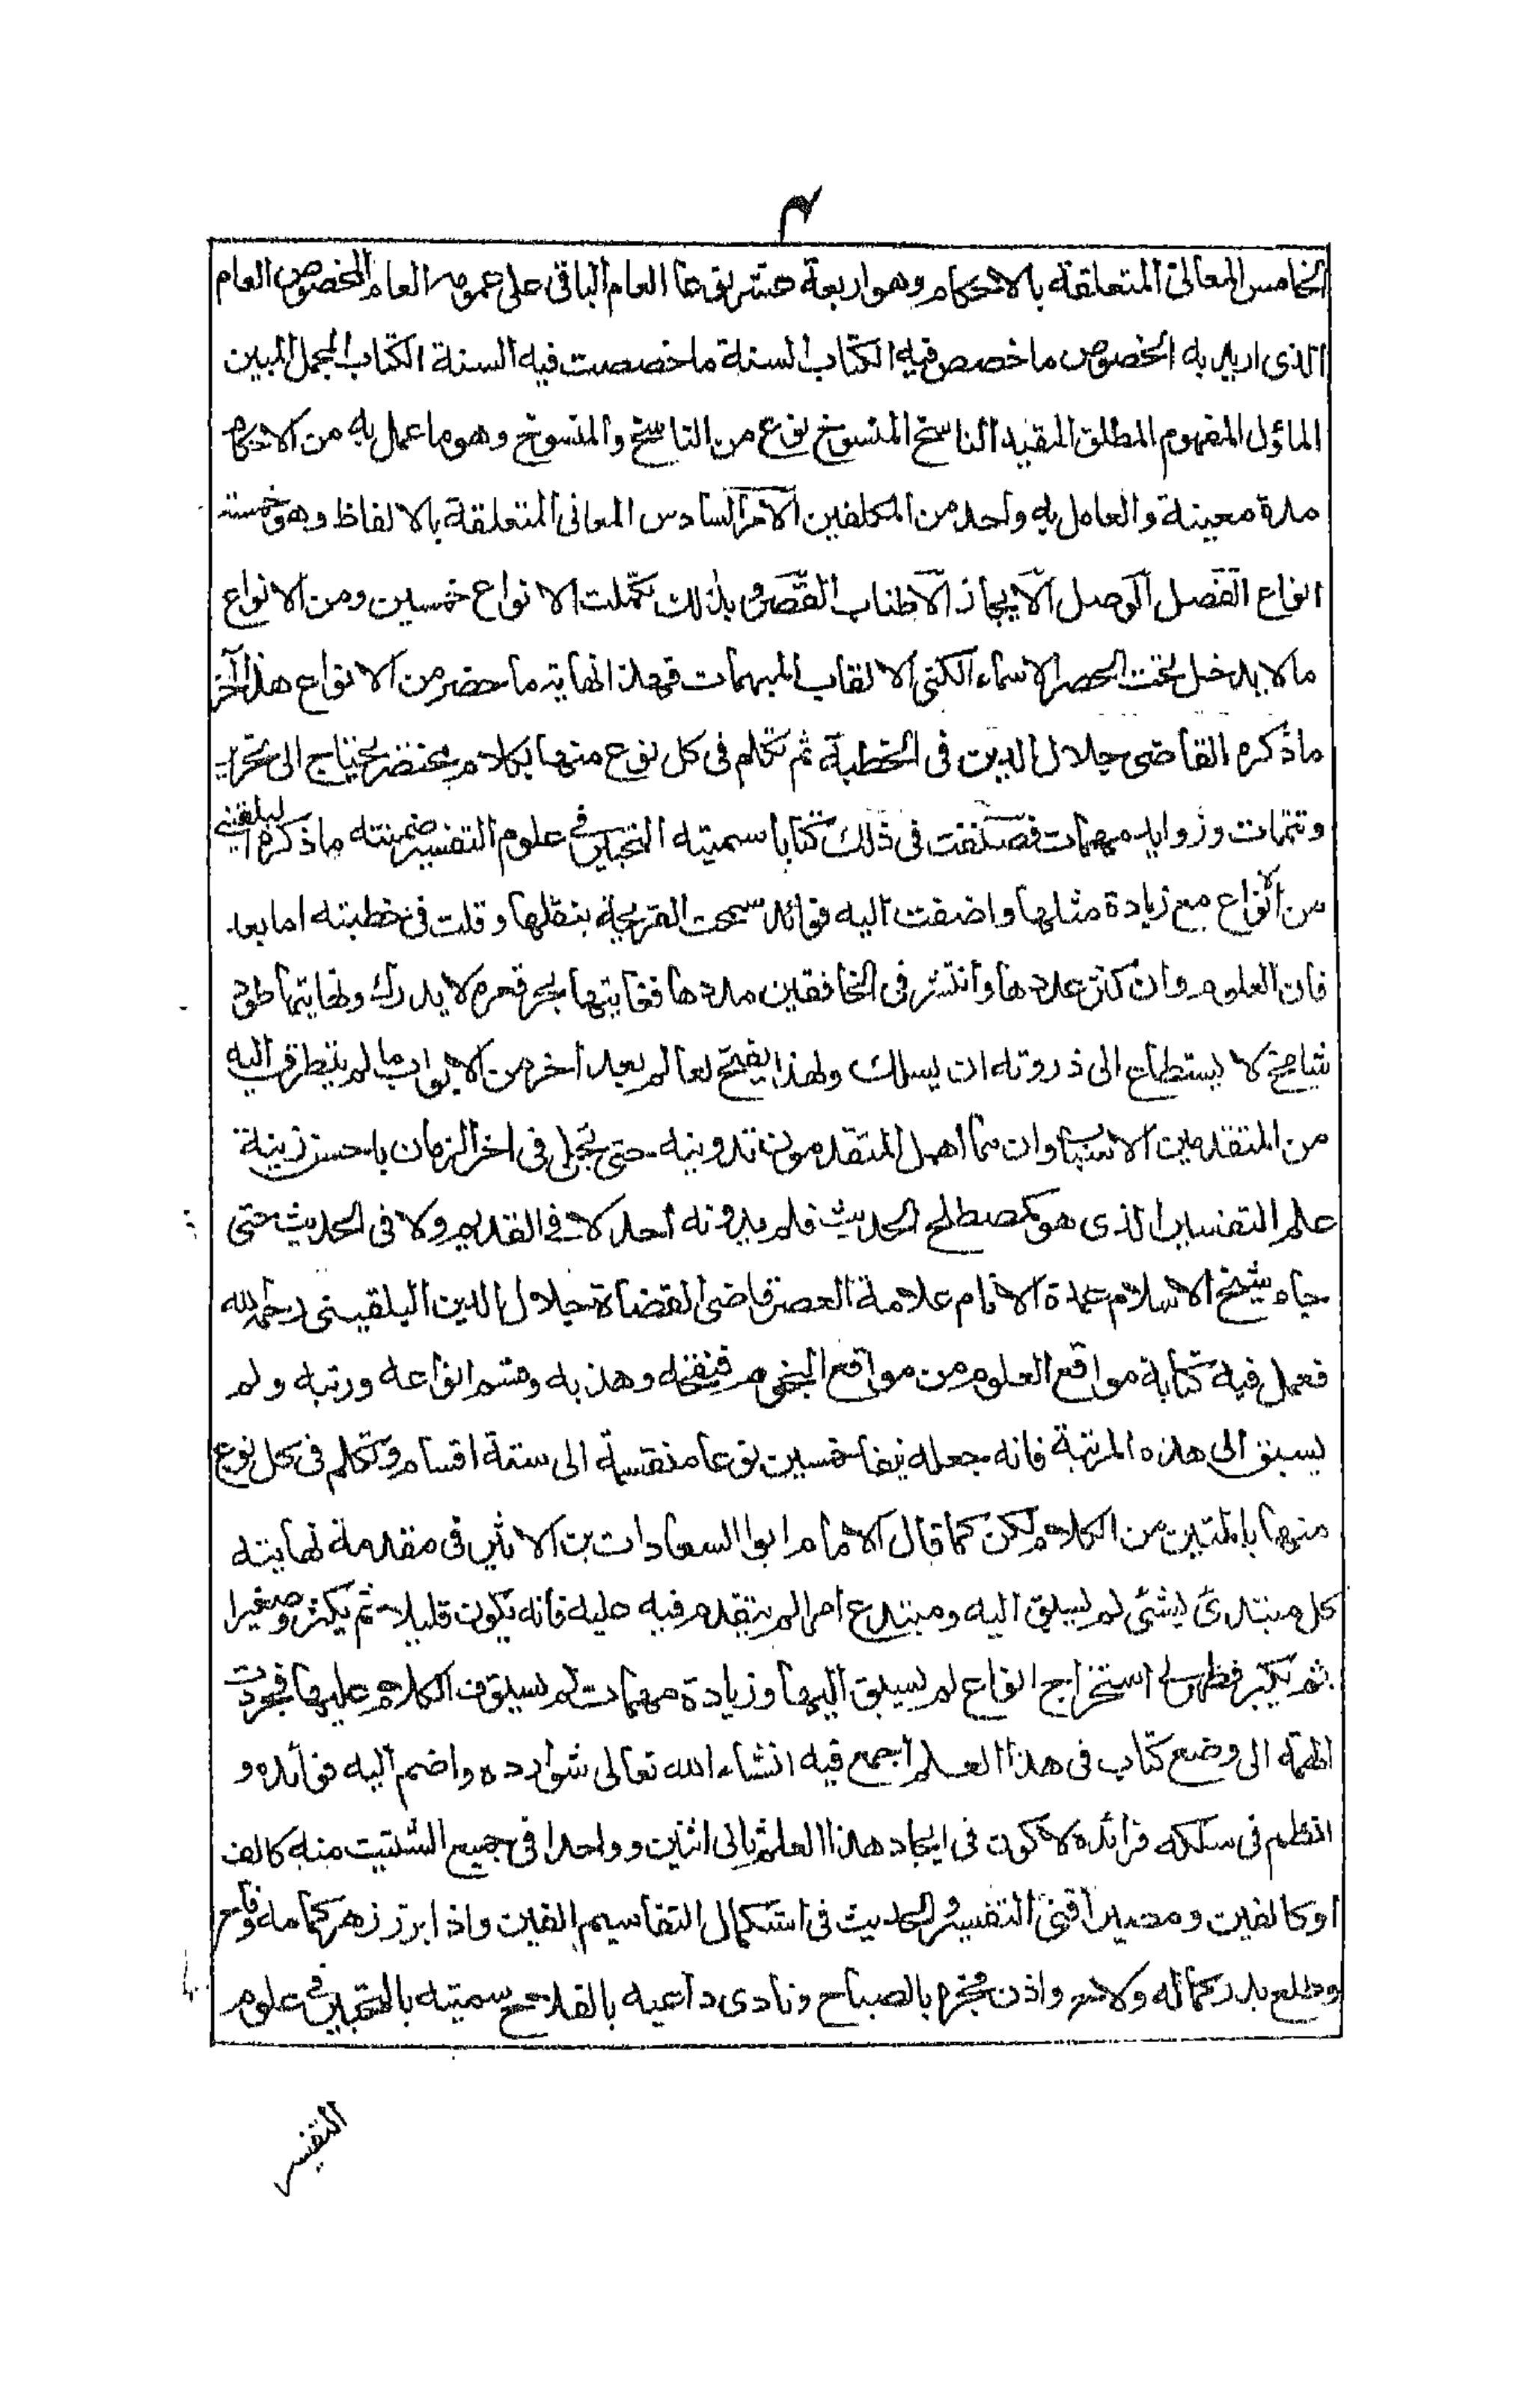 ٣
الخامس المعانى المتعلقة بالاحكام وهو اربعة عشر نوعا العام الباقى على عمومه العام المخصوص العام
الذى اريد به الخصوص ما خصص فيه الكتاب السنة ما خصصت فيه السنة الكتاب المجمل المبين
الماؤل المفهوم المطلق المقيد الناسخ المنسوخ نوع من الناسخ والمنسوخ وهو ما عمل به من الاحكام
مدة معينة والعامل به واحد من المكلفين الامر السادس المعانى المتعلقة بالالفاظ وهو خمسة
انواع الفصل الوصل الايجاز الاطناب القصر وبذلك تكملت الانواع خمسين ومن الانواع
ما لا يدخل تحت الحصر الاسماء الكنى الالقاب المبهمات فهذا نهاية ما حضر من الانواع هذا آخر
ما ذكره القاضى جلال الدين فى الخطبة ثم تكلم فى كل نوع منها بكلام مختصر يحتاج الى تحرير
وتتمات وزوايد مهمات فصنفت فى ذلك كتابا سميته التحبير فى علوم التفسير ضمنته ما ذكره البلقينى
من الانواع مع زيادة مثلها واضفت اليه فوائد سمحت القريحة بنقلها وقلت فى خطبته اما بعد
فان العلوم وان كثر عددها وانتشر فى الخافقين مددها فغايتها بحر قعره لا يدرك ونهايتها طود
شامخ لا يستطاع الى ذروته ان يسلك ولهذا يفتح لعالم بعد آخر من الابواب ما لم يتطرق اليه
من المتقدمين الاسباب وان مما اهمل المتقدمون تدوينه حتى تحلى فى اخر الزمان باحسن زينة
علم التفسير الذى هو كمصطلح الحديث فلم يدونه احد لا فى القديم ولا فى الحديث حتى
جاء شيخ الاسلام عمدة الانام علامة العصر قاضى القضاة جلال الدين البلقينى رحمه الله
فعمل فيه كتابه مواقع العلوم من مواقع النجوم فنقحه وهذبه وقسم انواعه ورتبه ولم
يسبق الى هذه المرتبة فانه جعله نيفا خمسين نوعا منقسمة الى ستة اقسام وتكلم فى كل نوع
منها بالمتين من الكلام ولكن كما قال الامام ابوا السعادات بن الاثير فى مقدمة نهايته
كل مبتدئ لشئ لم يسبق اليه ومبتدع امرا لم يتقدم فيه عليه فانه يكون قليلا ثم يكثر وصغيرا
ثم يكبر فظهر لى استخراج انواع لم يسبق اليها وزيادة مهمات لم يستوف الكلام عليها فجردت
الهمة الى وضع كتاب فى هذا العلم اجمع فيه انشاء الله تعالى شوارده واضم اليه فوائده و
انظم فى سلكه فرائده لاكون فى ايجاد هذا العلم ثانى اثنين وواحدا فى جميع الشتيت منه كالف
او كالفين ومصيرا فنى التفسير والحديث فى استكمال التقاسيم الفين واذا برز زهر كمامه وفاح
وطلع بدر كماله ولاح واذن فجره بالصباح ونادى داعيه بالفلاح سميته بالتحبير فى علوم
التفسير